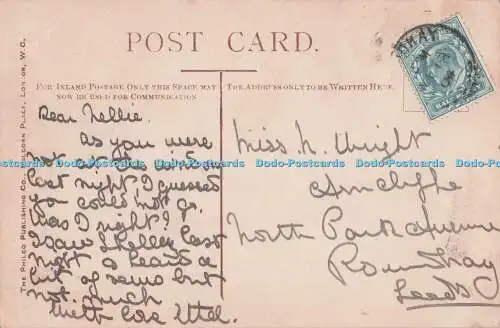 POST CARD.
FOR INLAND POSTAGE ONLY THIS SPACE MAY
NOW BE USED FOR COMMUNICATION
THE ADDRESS ONLY TO BE WRITTEN HERE.
THE PHILCO PUBLISHING CO., HOLBORN PLACE, LONDON, W.C.
Dear Nellie.
As you were
not at the window
last night I guessed
you could not go.
Was I right?
I saw Shelley last
night & heard a
bit of news but
not much
With love
Miss N. Wright
Arncliffe
North Park Avenue
Roundhay
Leeds
Dodo-Postcards Dodo-Postcards Dodo-Postcards Dodo-Postcards Dodo-Postcards